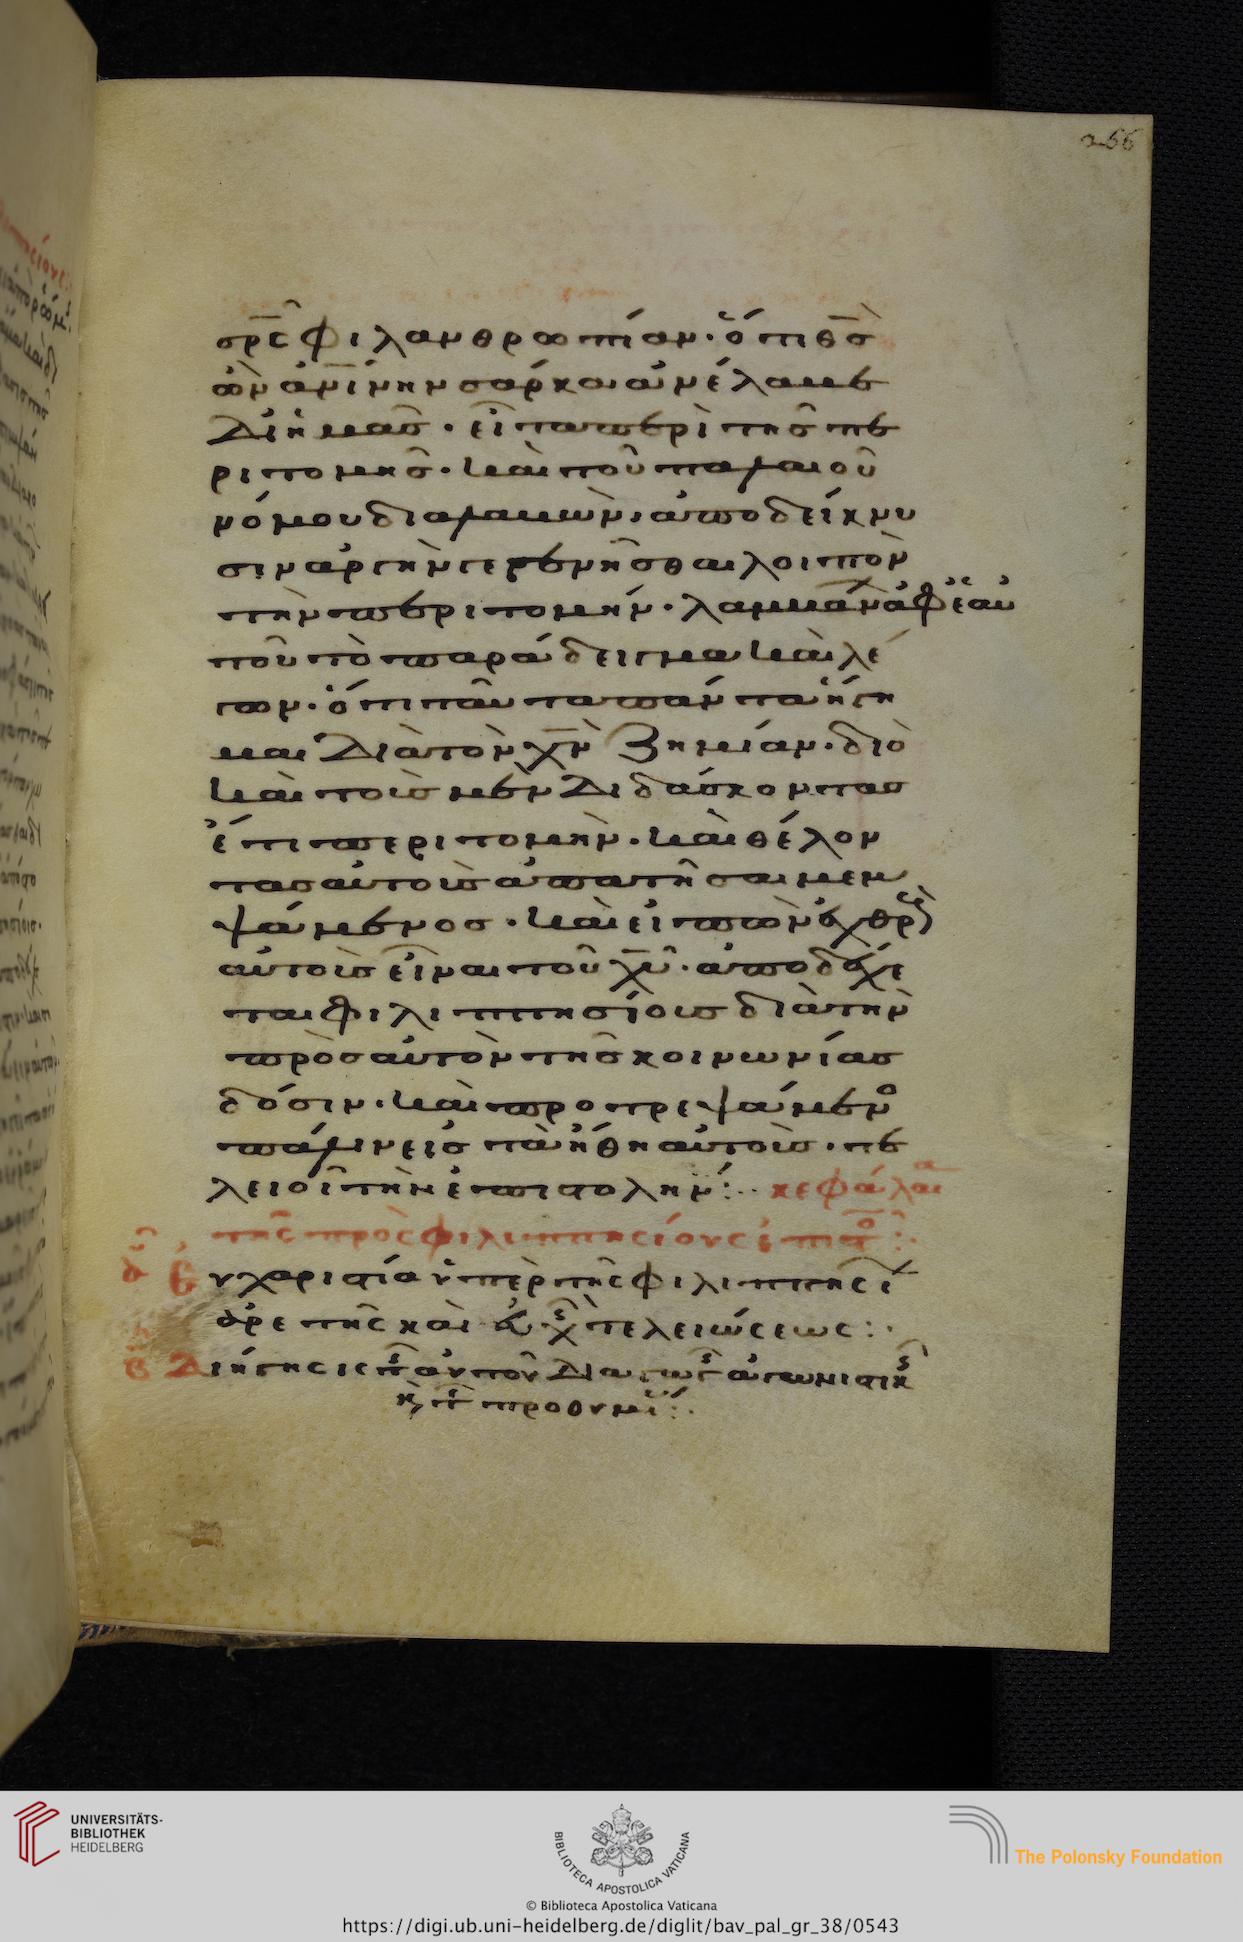 256
σρ̅ς φιλανθρωπίαν· ὅτι θς̅
ὢν ἀν̅ίνην σάρκα ἀνέλαβε
δι ἡμᾶς· εἶτα περὶ τῆς πε
ριτομῆς· καὶ τοῦ παλαιοῦ
νόμου διαλαβὼν, ἀποδείκνυ
σιν ἀργὴν γεγενῆσθαι λοιπὸν
τὴν περιτομήν· λαμβάν ἀφ ἑαυ
τοῦ τὸ παράδειγμα καὶ λέ
γων· ὅτι ταῦτα πάντα ἥγη
μαι διὰ τὸν χν̅ ζημίαν· διὸ
καὶ τοὺς μὲν διδάσκοντας
ἔτι περιτομὴν· καὶ θέλον
τας αὐτοὺς ἀπατῆσαι μεμ
ψάμενος· καὶ εἰπὼν ἐχθρ
αὐτοὺς εἶναι τοῦ χυ̅· ἀποδέχε
ται φιλιππησίους διὰ τὴν
πρὸς αὐτὸν τῆς κοινωνίας
δόσιν· καὶ προτρεψάμενο
πάλιν εἰς τὰ ἤθη αὐτοὺς· τε
λειοῖ τὴν ἐπιστολήν:· κεφάλαια
τῆς πρὸς φιλιππησίους ἐπιστο:·
α Εὐχαριστία ὑπὲρ τῆς φιλιππησί
ἀρετῆς καὶ εὐχ τελειώσεως:·
β Διήγησις τ αὐτοῦ διαγωγ ἀγωνιστικ
κ τ προθυμί:·
UNIVERSITÄTS-
BIBLIOTHEK
HEIDELBERG
BIBLIOTECA APOSTOLICA VATICANA
The Polonsky Foundation
© Biblioteca Apostolica Vaticana
https://digi.ub.uni-heidelberg.de/diglit/bav_pal_gr_38/0543